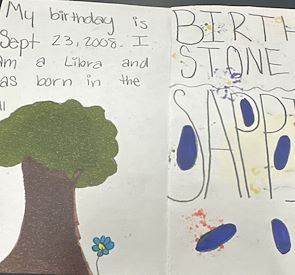 My birthday is
Sept 23, 2008. I
am a Libra and
was born in the
BIRTH
STONE
SAPP